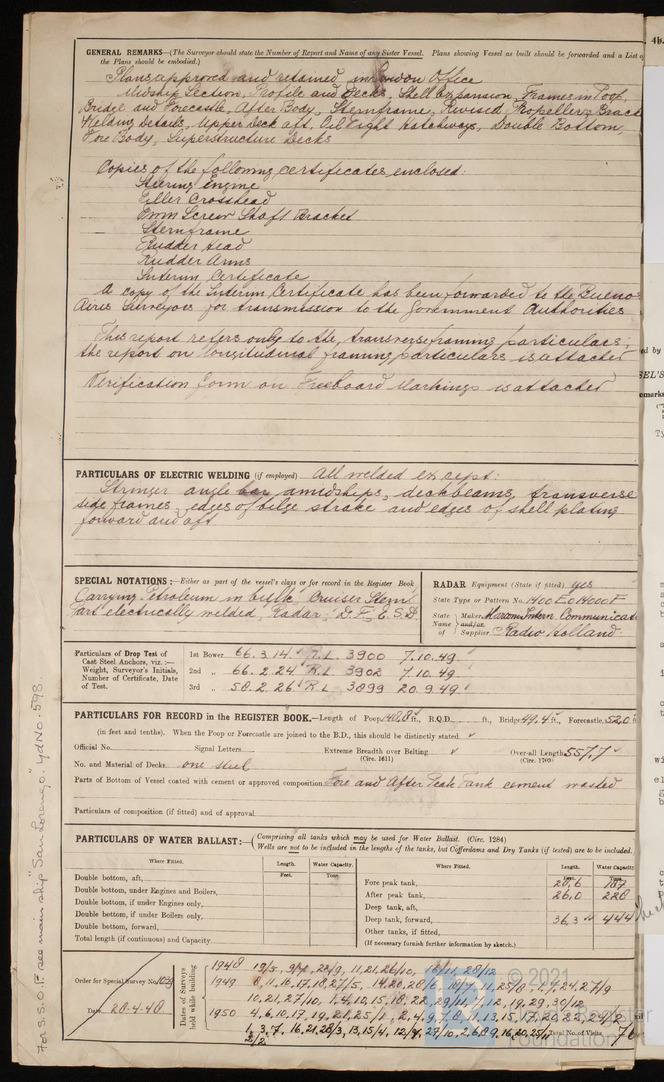 GENERAL REMARKS—(The Surveyor should state the Number of Report and Name of any Sister Vessel. Plans showing Vessel as built should be forwarded and a List of
the Plans should be embodied.)
Plans approved and retained in London Office
Midship Section, Profile and Decks, Shell Expansion, Frames in Poop,
Bridge and Forecastle, After Body, Sternframe, Revised Propeller Brack
Welding Details, Upper Deck aft, Oil Tight Hatchways, Double Bottom,
Fore Body, Superstructure Decks
Copies of the following certificates enclosed:
Steering Engine
Tiller Crosshead
Twin Screw Shaft Bracket
Sternframe
Rudder Head
Rudder Arms
Interim Certificate
A copy of the Interim Certificate has been forwarded to the Bueno
Aires Surveyors for transmission to the Government Authorities
This report refers only to the transverse framing particulars;
the report on longitudinal framing particulars is attached
Verification form on Freeboard Markings is attached
PARTICULARS OF ELECTRIC WELDING (if employed) All welded except:
Stringer angle bar amidships, deckbeams, transverse
side frames, edges of bilge strake and edges of shell plating
forward and aft
SPECIAL NOTATIONS:—Either as part of the vessel's class or for record in the Register Book
Carrying Petroleum in bulk, Cruiser Stern
Part electrically welded, Radar, D.F., E.S.D
RADAR Equipment (State if fitted) yes
State Type or Pattern No. 1400 E0 14000 F
State Name of Maker and/or Supplier Marconi Intern Communicat
Radio Holland
Particulars of Drop Test of Cast Steel Anchors, viz.:— Weight, Surveyor's Initials, Number of Certificate, Date of Test.
1st Bower 66.3.14 R.L. 3900 7.10.49
2nd " 66.2.24 R.L. 3902 7.10.49
3rd " 58.2.26 R.L. 3899 20.9.49
PARTICULARS FOR RECORD in the REGISTER BOOK.—Length of Poop 140,8 ft., R.Q.D. ft., Bridge 49,4 ft., Forecastle 52,0 ft
(in feet and tenths). When the Poop or Forecastle are joined to the B.D., this should be distinctly stated
Official No. Signal Letters Extreme Breadth over Belting (Circ. 1611) Over-all Length 557,7 (Circ. 1703)
No. and Material of Decks one steel
Parts of Bottom of Vessel coated with cement or approved composition Fore and After Peak Tank cement washed
Particulars of composition (if fitted) and of approval
PARTICULARS OF WATER BALLAST:— (Comprising all tanks which may be used for Water Ballast. (Circ. 1284)
Wells are not to be included in the lengths of the tanks, but Cofferdams and Dry Tanks (if tested) are to be included.
Where Fitted. Length. Water Capacity. Where Fitted. Length. Water Capacity
Feet. Tons. Feet. Tons.
Double bottom, aft, Fore peak tank, 20,6 187
Double bottom, under Engines and Boilers, After peak tank, 26,0 228
Double bottom, if under Engines only, Deep tank, aft,
Double bottom, if under Boilers only, Deep tank, forward, 36,3 444
Double bottom, forward, Other tanks, if fitted,
Total length (if continuous) and Capacity (If necessary furnish further information by sketch.)
Order for Special Survey No. 1039
Date 28-4-48
Dates of Surveys held while building
1948 19/5, 9/7, 22/9, 11,21,26/10, 16/11, 28/12
1949
10,21,27/10, 1,4,10,15,18,22,29/11,
1950
Total No. of Visits 76
For S.S.O.P. see main ship "San Lorenzo" Yd No: 598
© 2021
Lloyd's Register
Foundation